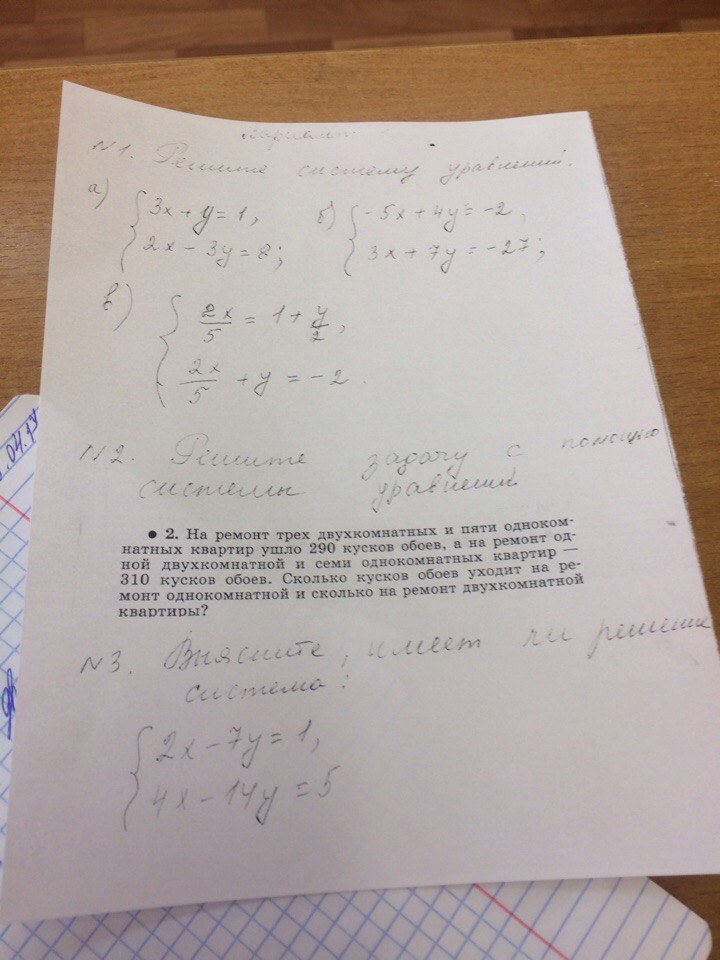 Вариант
№1. Решите систему уравнений.
а) { 3x + y = 1,
2x - 3y = 8;
б) { -5x + 4y = -2,
3x + 7y = -27;
в) { 2x/5 = 1 + y/2,
2x/5 + y = -2.
№2. Решите задачу с помощью
системы уравнений.
• 2. На ремонт трех двухкомнатных и пяти одноком-
натных квартир ушло 290 кусков обоев, а на ремонт од-
ной двухкомнатной и семи однокомнатных квартир —
310 кусков обоев. Сколько кусков обоев уходит на ре-
монт однокомнатной и сколько на ремонт двухкомнатной
квартиры?
№3. Выясните, имеет ли решение
система:
{ 2x - 7y = 1,
4x - 14y = 5
.04.17